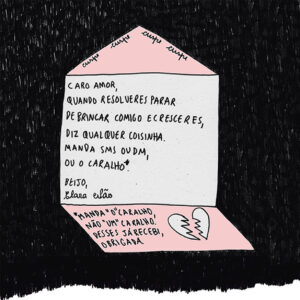 cuspe cuspe cuspe cuspe
CARO AMOR,
QUANDO RESOLVERES PARAR
DE BRINCAR COMIGO E CRESCERES,
DIZ QUALQUER COISINHA.
MANDA SMS OU DM,
OU O CARALHO*.
BEIJO,
Clara não
*MANDA "O" CARALHO,
NÃO "UM" CARALHO.
DESSES JÁ RECEBI,
OBRIGADA.